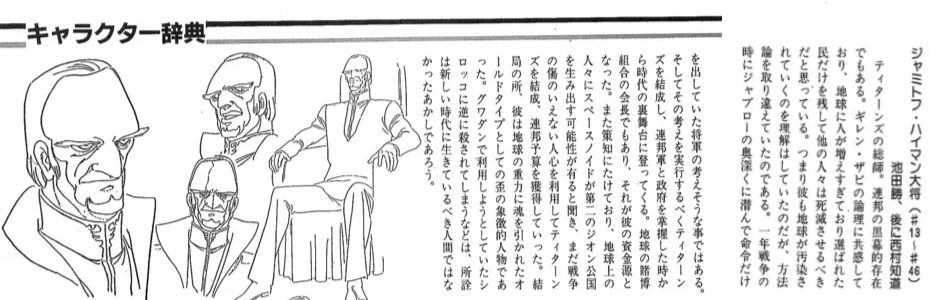 キャラクター辞典
ジャミトフ・ハイマン大将(#13~#46)
池田勝、後に西村知道
ティターンズの総師。連邦の黒幕的存在
でもある。ギレン・ザビの論理に共感して
おり、地球に人が増えすぎており選ばれた
民だけを残して他の人々は死滅させるべき
だと思っている。つまり彼も地球が汚染さ
れていくのを理解はしていたのだが、方法
論を取り違えていたのである。一年戦争の
時にジャブローの奥深くに潜んで命令だけ
を出していた将軍の考えそうな事ではある。
そしてその考えを実行するべくティターン
ズを結成し、連邦軍と政府を掌握した時か
ら時代の裏舞台に登ってくる。地球の賭博
組合の会長でもあり、それが彼の資金源と
なった。また策知にたけており、地球上の
人々にスペースノイドが第二のジオン公国
を生み出す可能性が有ると聞き、まだ戦争
の傷のいえない人心を利用してティターン
ズを結成、連邦予算を獲得していった。結
局の所、彼は地球の重力に魂を引かれたオ
ールドタイプとしての歪の象徴的人物であ
った。グワダンで利用しようとしていたシ
ロッコに逆に殺されてしまうなどは、所詮
は新しい時代に生きているべき人間ではな
かったあかしであろう。